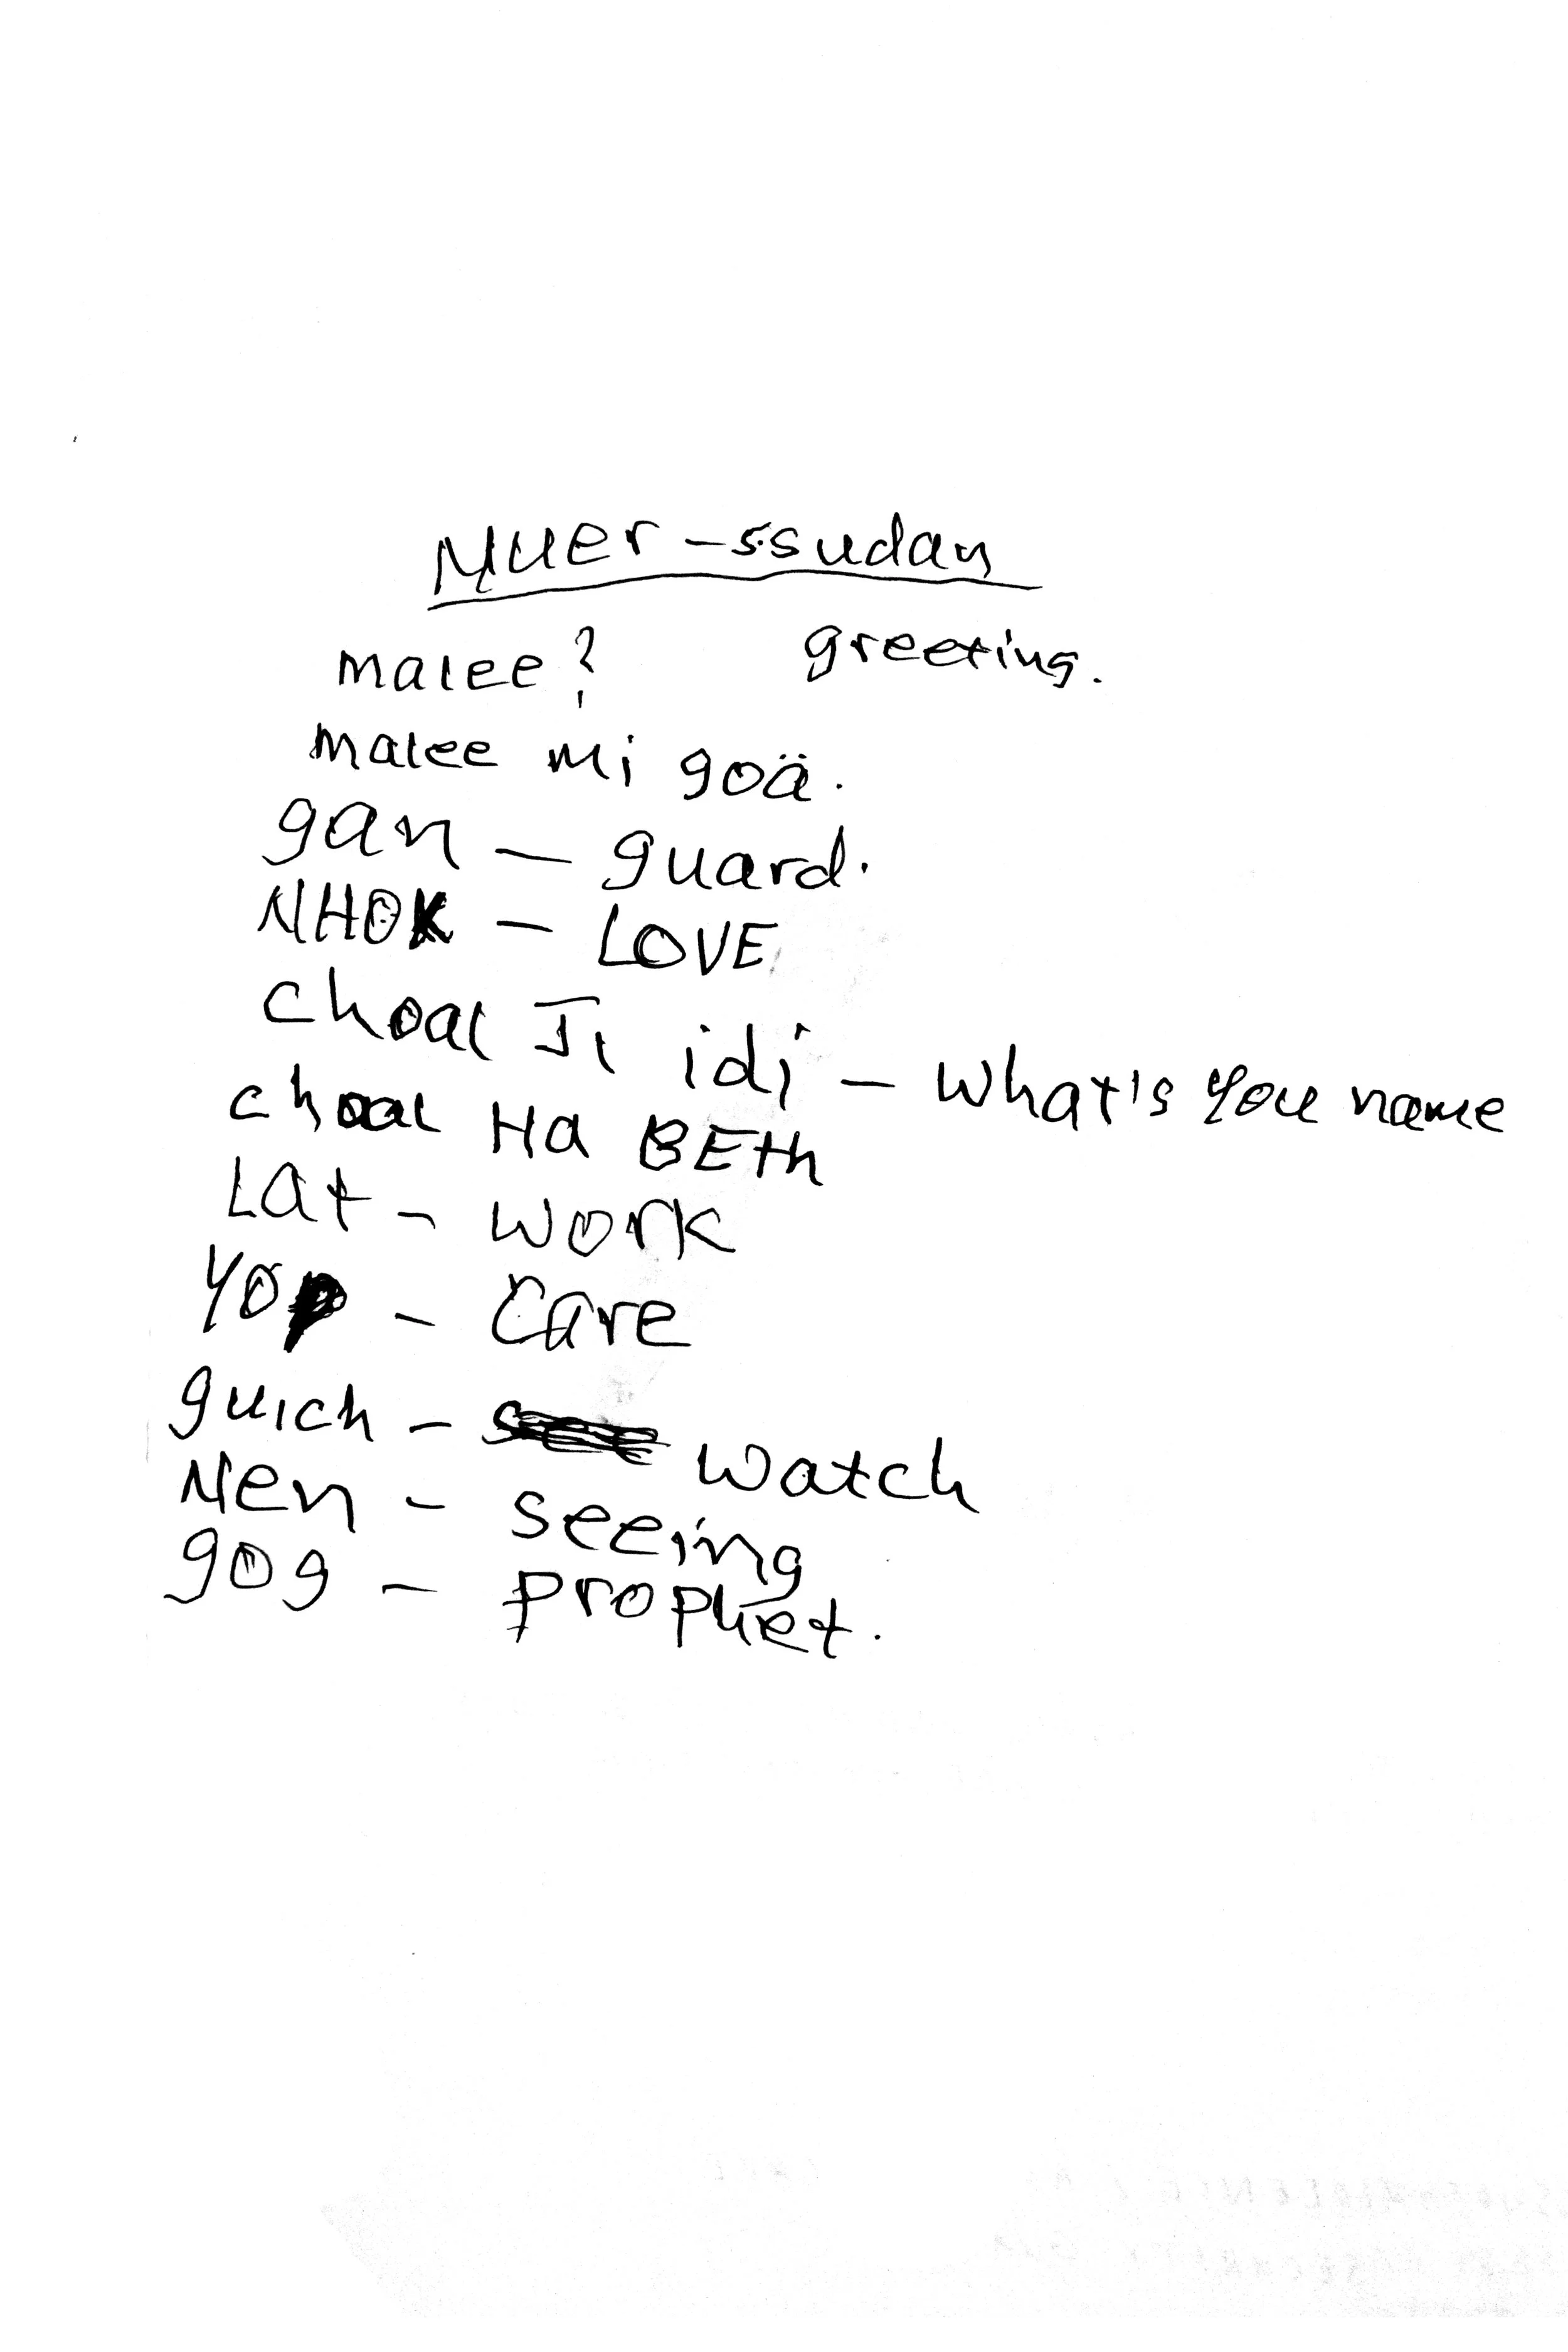 NUER - S.Sudan
malee? greeting.
malee mi goä.
gan - guard.
NHOK - LOVE
choal JI idi - what's you name
choal Ha BETH
Lat - work
YOP - care
guich - watch
Nen - seeing
gog - prophet.